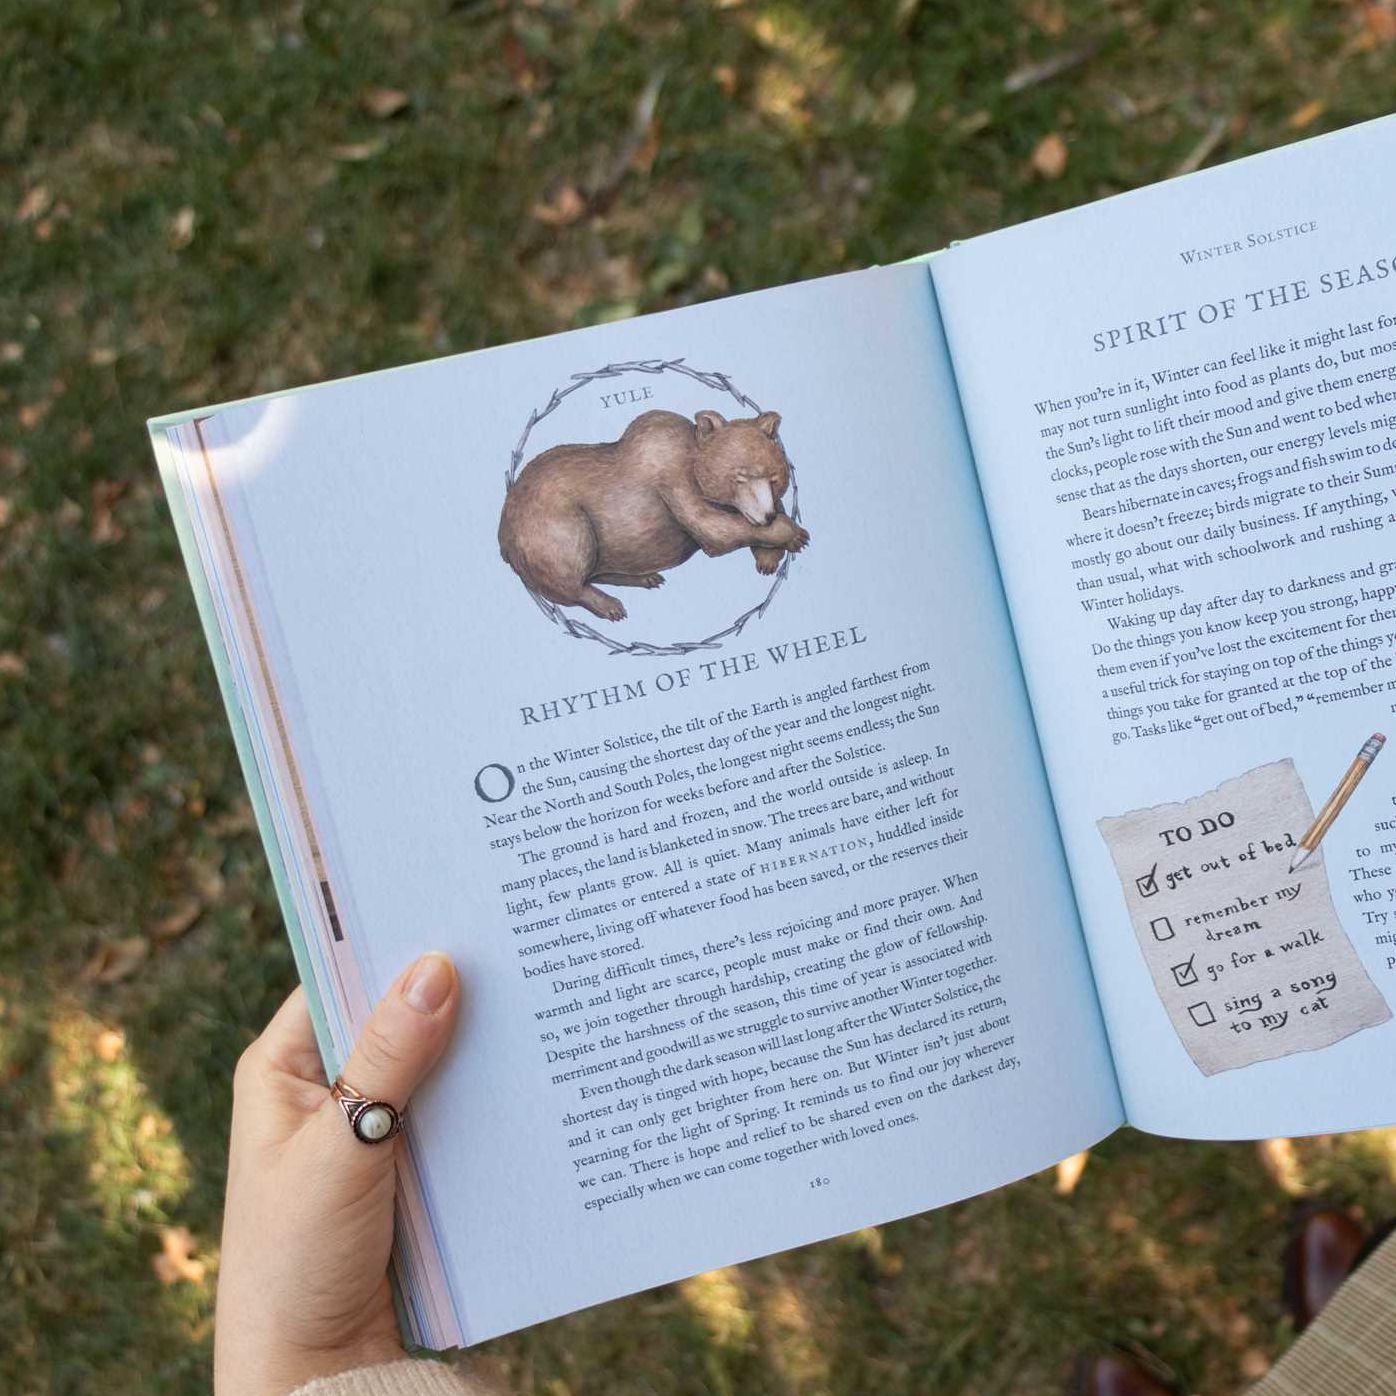 YULE
RHYTHM OF THE WHEEL
On the Winter Solstice, the tilt of the Earth is angled farthest from
the Sun, causing the shortest day of the year and the longest night.
Near the North and South Poles, the longest night seems endless; the Sun
stays below the horizon for weeks before and after the Solstice.
The ground is hard and frozen, and the world outside is asleep. In
many places, the land is blanketed in snow. The trees are bare, and without
light, few plants grow. All is quiet. Many animals have either left for
warmer climates or entered a state of HIBERNATION, huddled inside
somewhere, living off whatever food has been saved, or the reserves their
bodies have stored.
During difficult times, there's less rejoicing and more prayer. When
warmth and light are scarce, people must make or find their own. And
so, we join together through hardship, creating the glow of fellowship.
Despite the harshness of the season, this time of year is associated with
merriment and goodwill as we struggle to survive another Winter together.
Even though the dark season will last long after the Winter Solstice, the
shortest day is tinged with hope, because the Sun has declared its return,
and it can only get brighter from here on. But Winter isn't just about
yearning for the light of Spring. It reminds us to find our joy wherever
we can. There is hope and relief to be shared even on the darkest day,
especially when we can come together with loved ones.
180
WINTER SOLSTICE
SPIRIT OF THE
When you're in it, Winter can feel like it might last
may not turn sunlight into food as plants do, but
the Sun's light to lift their mood and give them
clocks, people rose with the Sun and went to bed
sense that as the days shorten, our energy levels
Bears hibernate in caves; frogs and fish swim to
where it doesn't freeze; birds migrate to their
mostly go about our daily business. If anything,
than usual, what with schoolwork and rushing
Winter holidays.
Waking up day after day to darkness and
Do the things you know keep you strong,
them even if you've lost the excitement for
a useful trick for staying on top of the things
things you take for granted at the top of the
go. Tasks like "get out of bed," "remember
TO DO
get out of bed
remember my
dream
go for a walk
sing a song
to my cat
to
These
who
Try